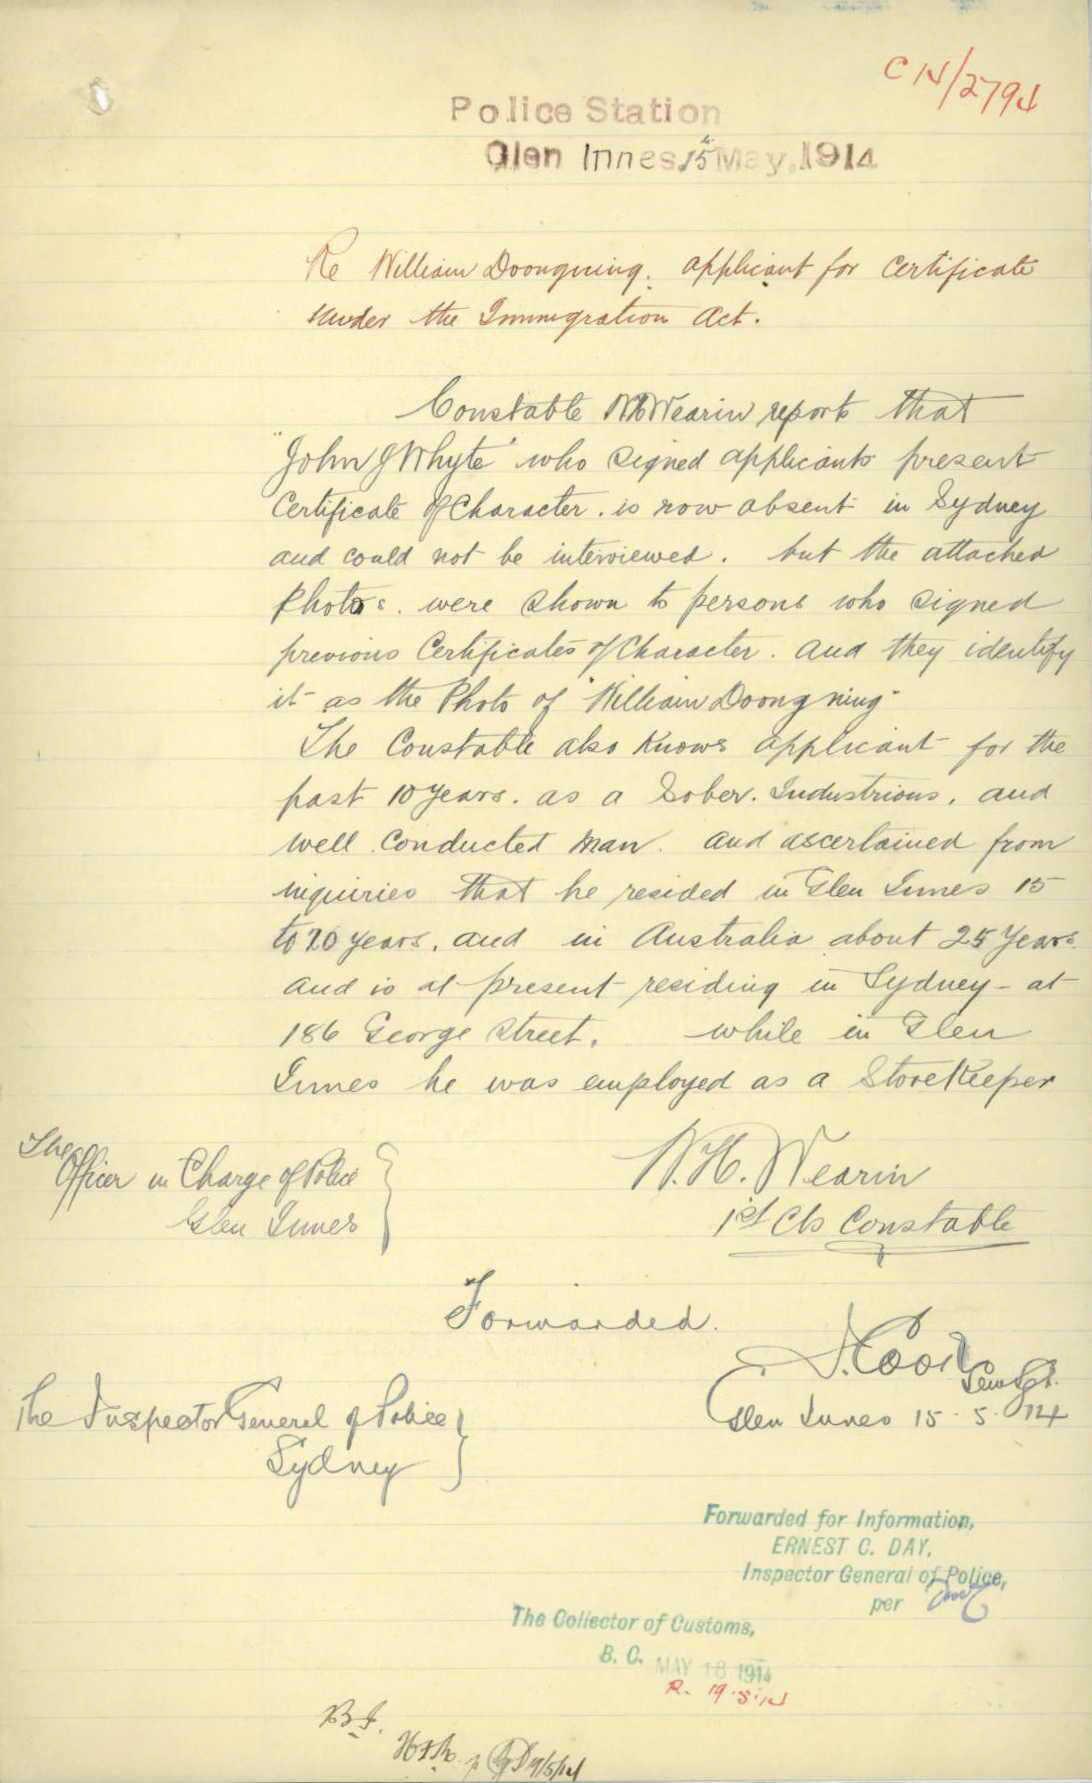 C 14/2794
Police Station
Glen Innes, 15th May, 1914
Re William Doongning. applicant for Certificate
under the Immigration Act.
Constable W H Wearin reports that
"John J Whyte" who signed applicants present
Certificate of Character. is now absent in Sydney
and could not be interviewed. but the attached
Photos. were shown to persons who signed
previous Certificates of Character. and they identify
it as the Photo of "William Doongning"
The Constable also knows applicant for the
past 10 years. as a Sober. Industrious. and
well conducted man. and ascertained from
inquiries that he resided in Glen Innes 15
to 20 years. and in Australia about 25 years
and is at present residing in Sydney - at
186 George Street. while in Glen
Innes he was employed as a StoreKeeper
The
Officer in Charge of Police
Glen Innes
W. H. Wearin
1st Cls Constable
Forwarded.
Sen Sgt.
Glen Innes 15.5.14
The Inspector General of Police
Sydney
Forwarded for Information,
ERNEST C. DAY.
Inspector General of Police,
per
The Collector of Customs,
B. C. MAY 18 1914
R. 19.5.14
B.F.
19/5/14